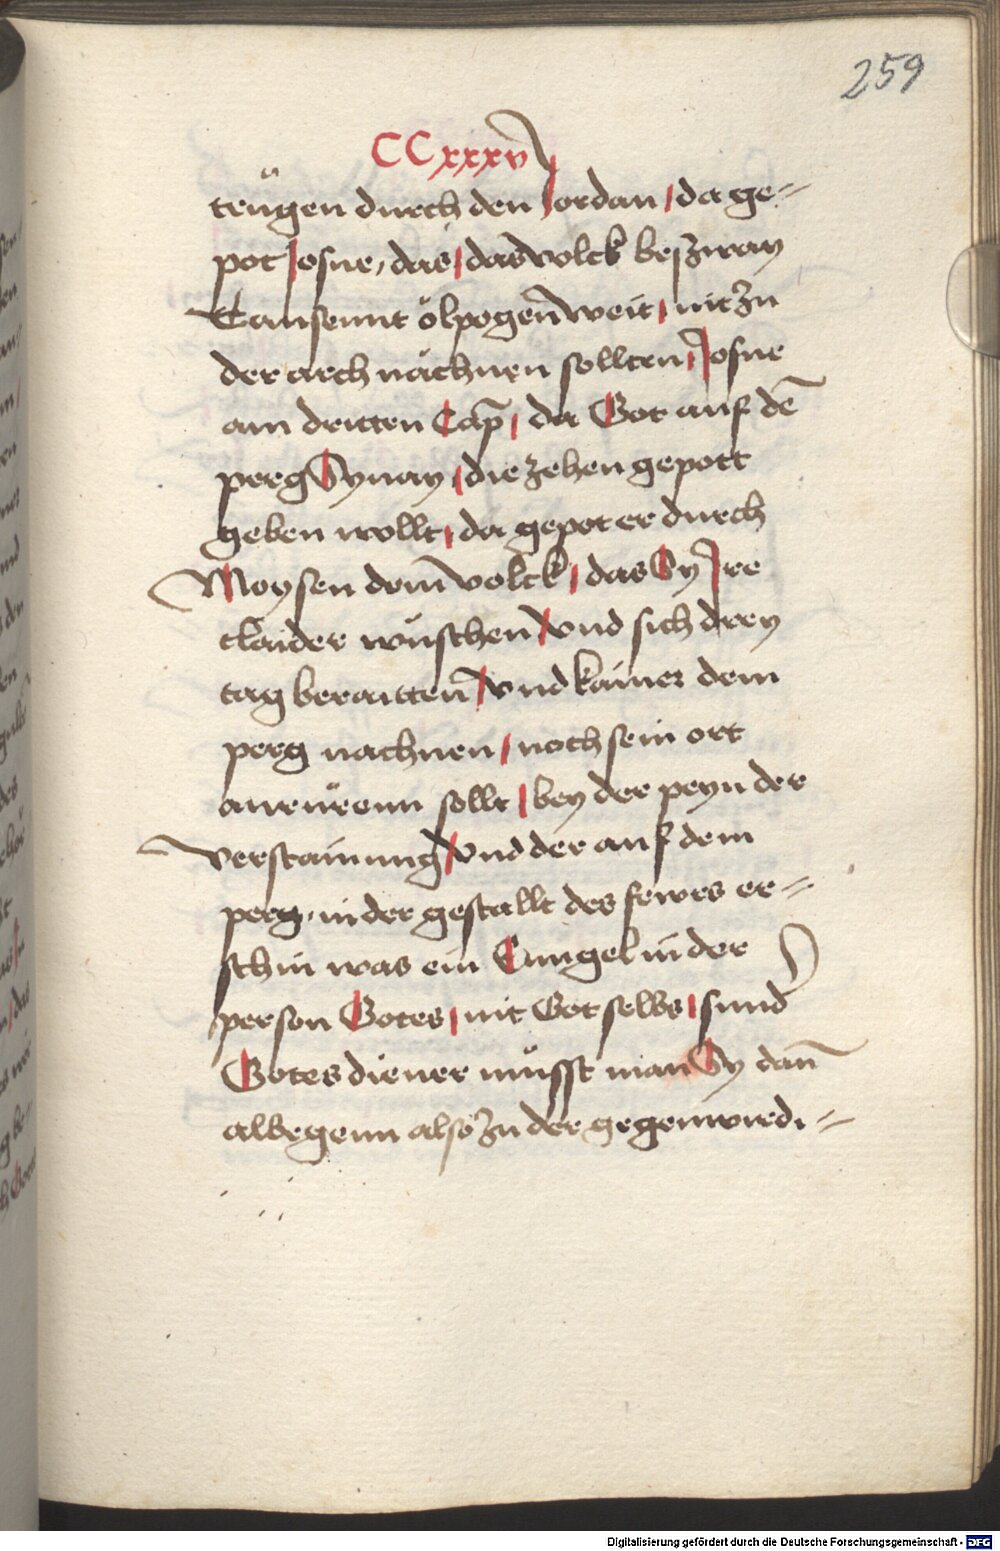 259
CCxxxv
teügen durch den Jordan / da ge=
pot Josue, das / das volck beszway
Tausennt ölpogen̄ weit / nit zu
der arch nächnen sollten / Josue
am dritten Cap̄ / da Got auf dē
perg Synay / die zehen gepott
geben wollt / da gepot er durch
Moysen dem volck / das Sy Ire
claider wüschen / vnd sich drey
tag beraitten̄ / vnd kainer dem
perg nachnen / noch sein ort
anrürenn sollt / bey der peyn der
verstainung / vnd der auf dem
perg, in der gestallt des fewrs er=
schin was ein Enngel in der
person Gotes / nit Got selbs / sund
Gotes diener müsst man Sy dan̄
albegenn also zu der gegenwirdi=
Digitalisierung gefördert durch die Deutsche Forschungsgemeinschaft - DFG